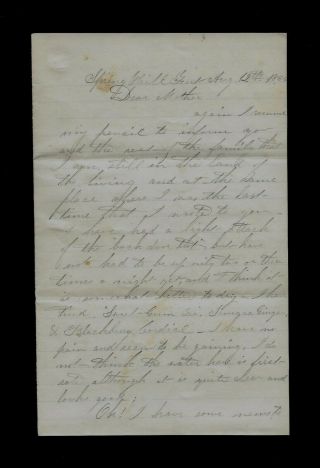 Spring Hill Aug. 15th
Dear Mother
again I resume
my pencil to inform yo
and the rest of the family that
I am still in the land of
the living and at the same
place where I was the last
time that I wrote to you
I have had a light attack
of the back door trot, but have
not had to be up only two or three
times a night yet, and I think it
is somewhat better to day. I have
tried
& Blackberry Cordial. I have no
pain and seem to be gaining. I do
not think the water here is first
rate although it is quite clear and
looks good;
Oh! I have some news to